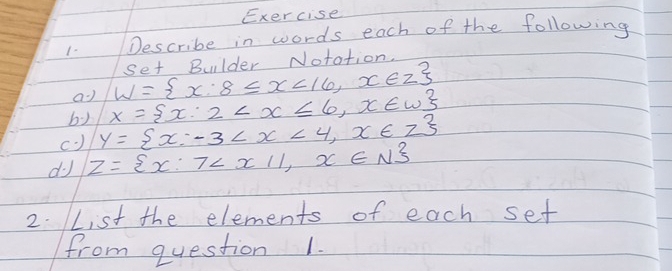 Exercise
1. Describe in words each of the following
Set Builder Notation.
a.) W = { x : 8 ≤ x < 16, x ∈ Z }
b.) X = { x : 2 < x ≤ 6, x ∈ W }
c.) Y = { x : -3 < x < 4, x ∈ Z }
d.) Z = { x : 7 < x 11, x ∈ N }
2. List the elements of each set
from question 1.